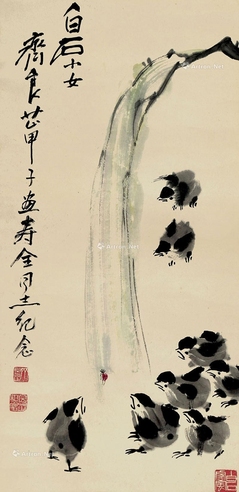 白石小女
齊良芷甲子畫寿全同志纪念